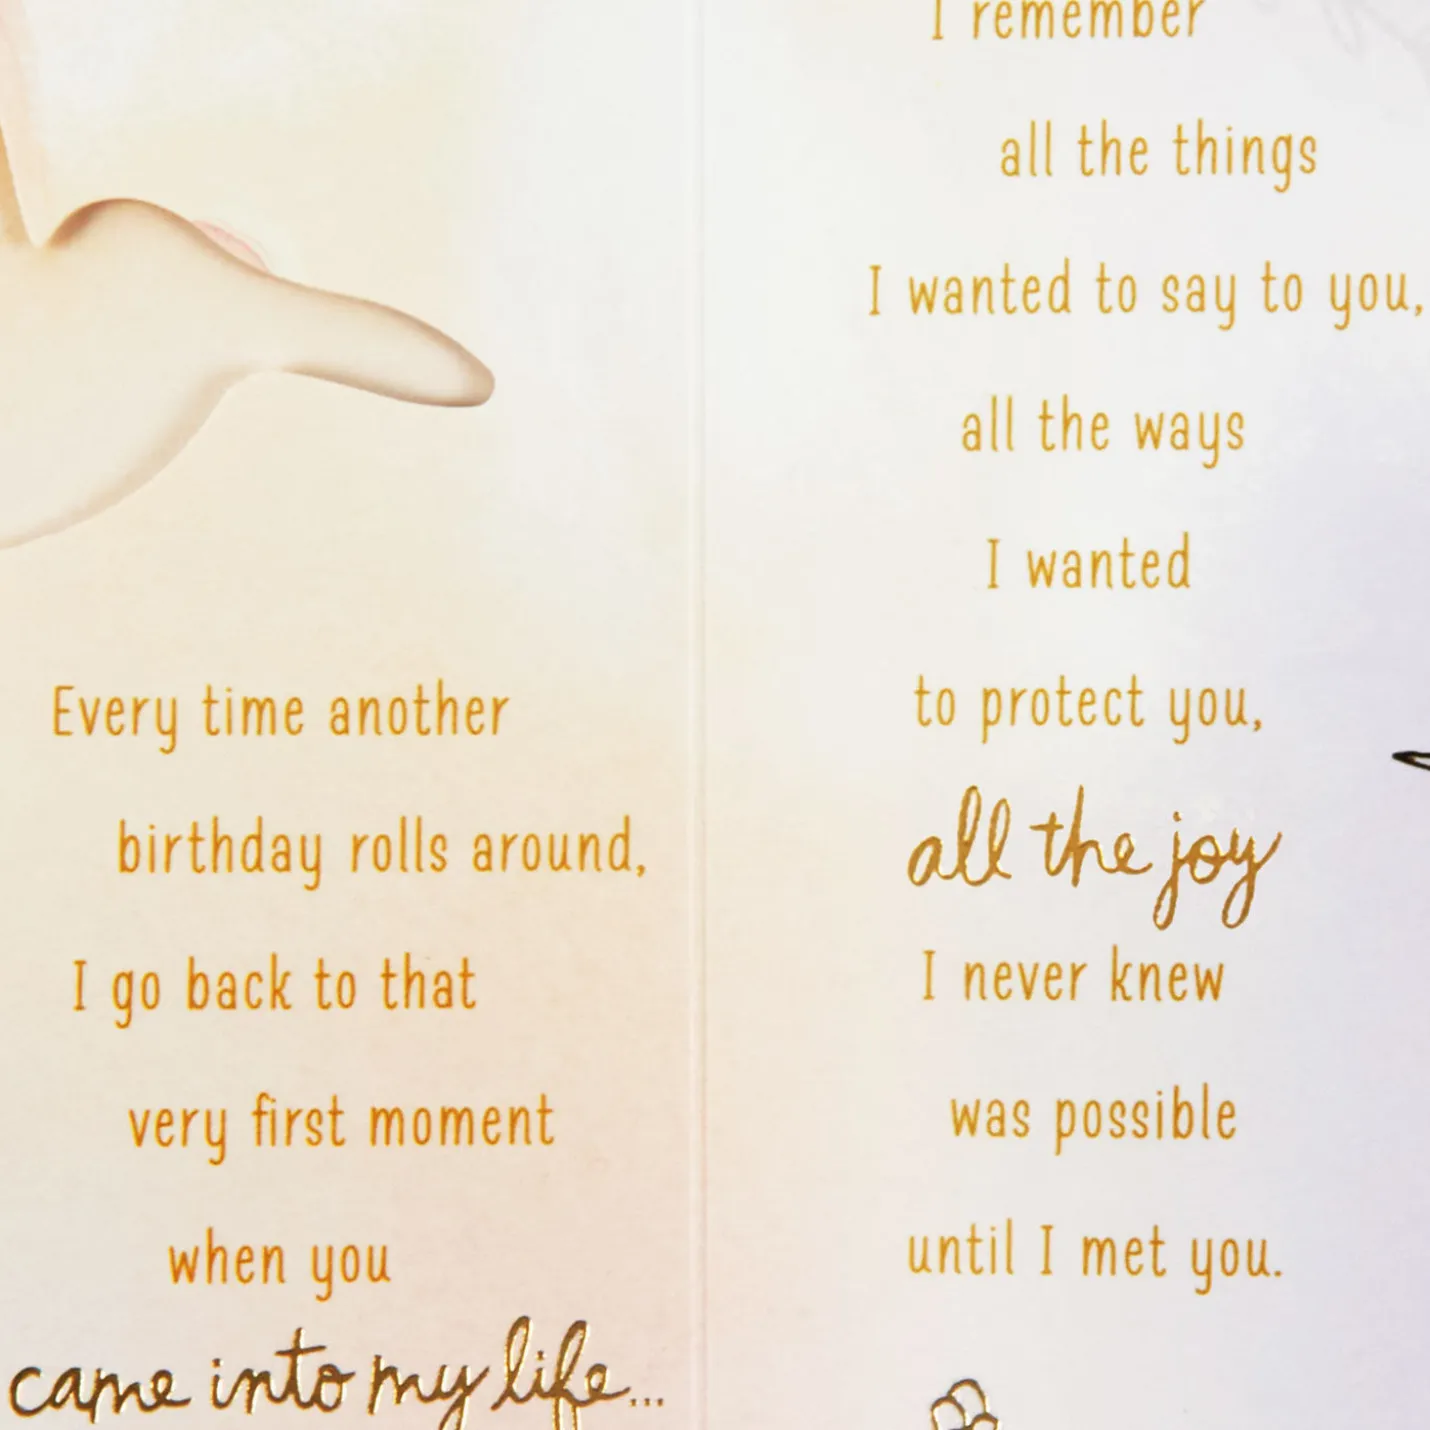 Every time another
birthday rolls around,
I go back to that
very first moment
when you
came into my life...
I remember
all the things
I wanted to say to you,
all the ways
I wanted
to protect you,
all the joy
I never knew
was possible
until I met you.